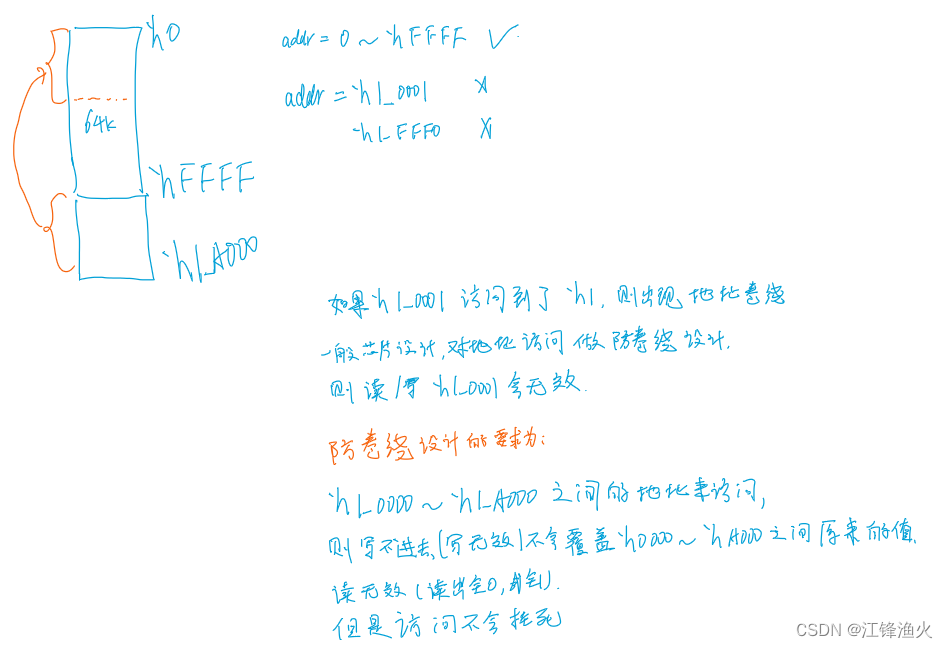 'h0
addr = 0 ~ 'hFFFF ✓.
addr = 'h1_0001 X
'h1_FFF0 X
64k
'hFFFF
'h1_A000
如果'h1_0001 访问到了 'h1, 则出现 地址卷绕
一般芯片设计,对地址访问做防卷绕设计.
则读/写 'h1_0001 会无效.
防卷绕设计的要求为:
'h1_0000 ~ 'h1_A000 之间的地址来访问,
则写不进去,(写无效)不会覆盖'h0000 ~ 'hA000 之间原来的值.
读无效(读出全0,).
但是访问不会挂死
CSDN @江锋渔火